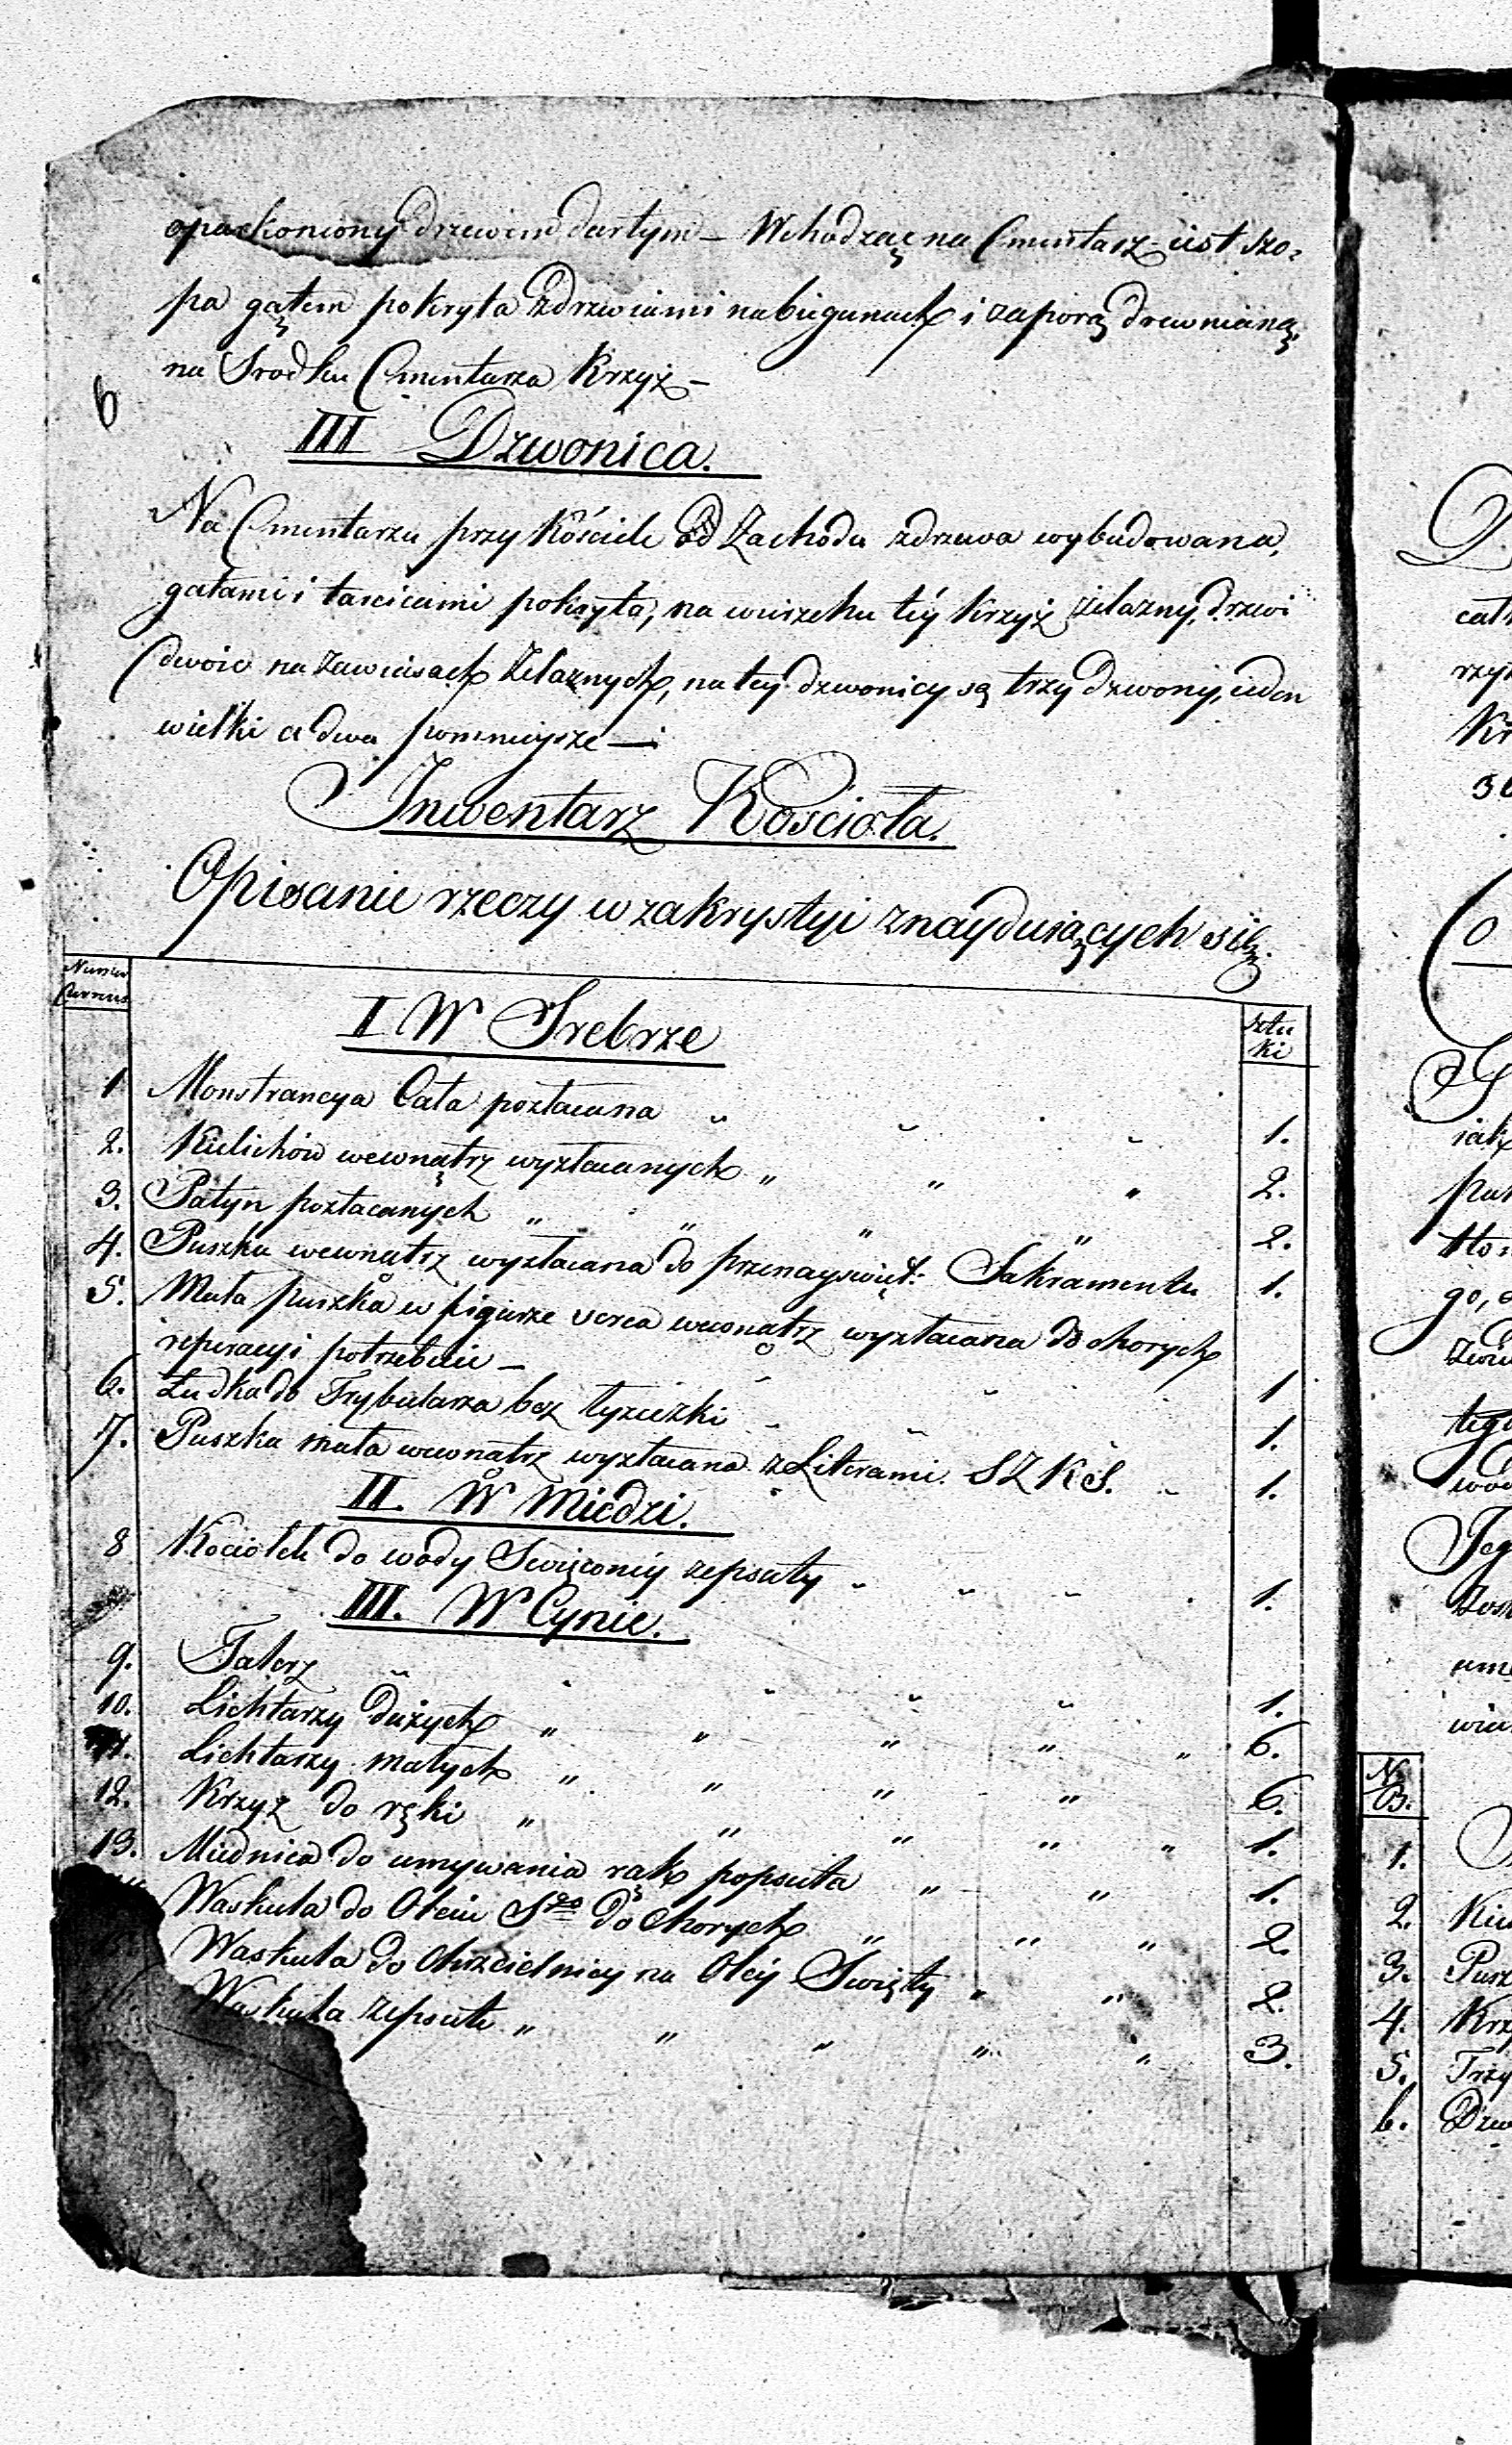 oparkoniony drzewem dartym – Wchodząc na Cmentarz iest szo-
pa gątem pokryta zdrzwiami nabiegunach i zaporą drewnianą,
na Srodku Cmentarza Krzyż –
6
III Dzwonica.
Na Cmentarzu przy Kościele od Zachodu zdrzewa wybudowana,
gatami i tarcicami pokryta, na wierzchu téy Krzyż żelazny, drzwi
dwoie na zawiasach żelaznych, na tey dzwonicy są trzy dzwony, ieden
wielki a dwa pomnieysze –
Inwentarz Kościoła.
Opisanie rzeczy w zakrystyi znayduiących się.
Numer Currens
sztuki
I W Srebrze
1 Monstrancya Cała pozłacana " " " 1.
2. Kielichów wewnątrz wyzłacanych " " " 2.
3. Patyn pozłacanych " " " " 2.
4. Puszka wewnątrz wyzłacana do przenayświęt: Sakramentu 1.
5. Mała puszka w figurze serca wewnątrz wyzłacana do chorych
reperacyi potrzebuie – " " 1
6. Łudka do Trybularza bez łyżeczki " " 1.
7. Puszka mała wewnątrz wyzłacana z Literami S Z K S. " 1.
II. W Miedzi.
8 Kociołek do wody Swięconéy zepsuty " " " 1.
III. W Cynie.
9. Talerz " " " " " 1.
10. Lichtarzy dużych " " " " " 6.
11. Lichtarzy małych " " " " 6.
12. Krzyż do ręki " " " " " 1.
13. Miednica do umywania rąk popsuta " " 1.
Waskuła do Oleiu Sgo do Chorych " " " 2.
Waskuła do Chrzcielnicy na Oléy Swięty " " 2.
Waskuła zepsute " " " " " 3.
N
B.
1.
2.
3.
4.
5.
6.